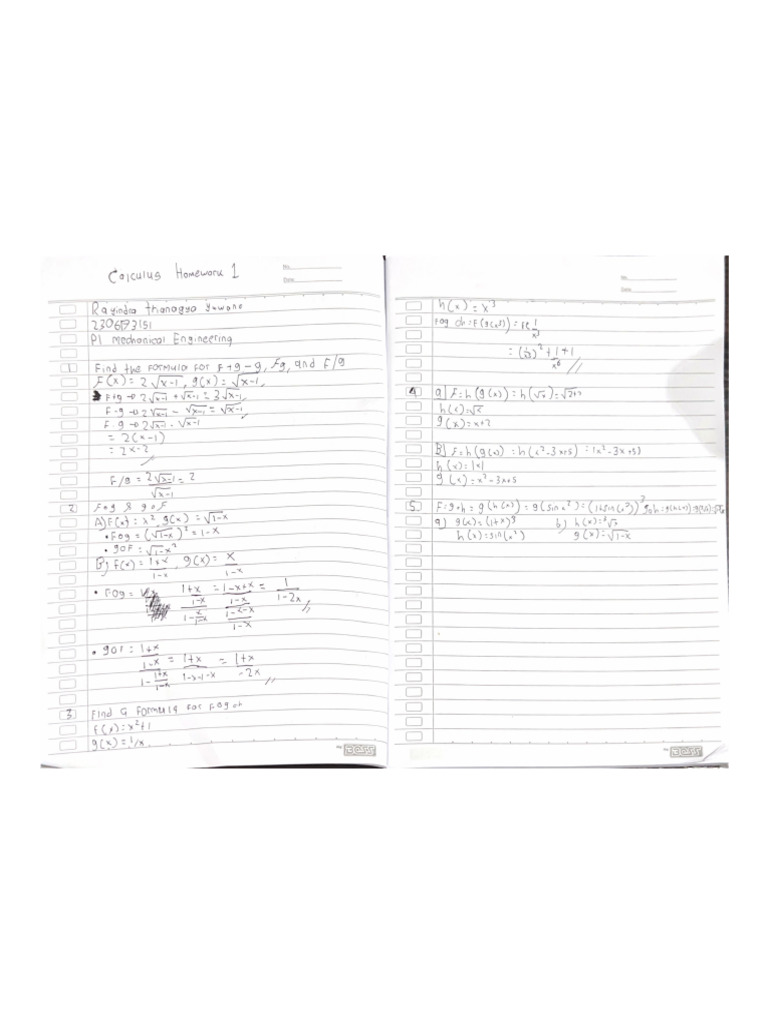 Calculus Homework 1
No.
Date
Rayindra Thanagya Yuwana
2306173151
P1 Mechanical Engineering
1 Find the formula for f+g-g, fg, and f/g
f(x) = 2√x-1, g(x) = √x-1
f+g → 2√x-1 + √x-1 = 3√x-1
f-g → 2√x-1 - √x-1 = √x-1
f.g → 2√x-1 . √x-1
= 2(x-1)
= 2x-2
f/g = 2√x-1 / √x-1 = 2
2 fog & gof
A) f(x) = x² g(x) = √1-x
• fog = (√1-x)² = 1-x
• gof = √1-x²
B) f(x) = 1+x / 1-x , g(x) = x / 1-x
• fog = 1+x = 1-x+x = 1 / 1-2x
• gof = 1+x / 1-x = 1+x = 1+x / -2x
1- 1+x / 1-x 1-x-1-x
3. Find a formula for fog oh
f(x) = x²+1
g(x) = 1/x
No.
Date
h(x) = x³
= (1/x³)² + 1 = 1 / x⁶ + 1
4 a) f = h(g(x)) = h(√x) = √x+2
h(x) = √x
g(x) = x+2
B) f = h(g(x)) = h(x²-3x+5) = |x²-3x+5|
h(x) = |x|
g(x) = x²-3x+5
5. f = goh = g(h(x)) = g(sin x²) = (1+sin(x²))³
a) g(x) = (1+x)³ b) h(x) = ³√x
h(x) = sin(x²) g(x) = √1-x